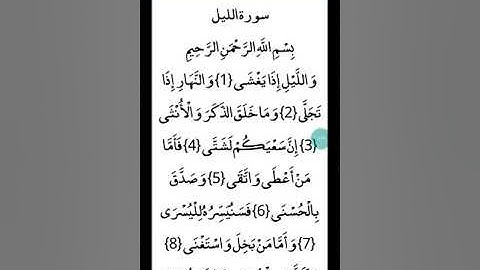 سورة الليل
بِسْمِ اللَّهِ الرَّحْمَنِ الرَّحِيمِ
وَاللَّيْلِ إِذَا يَغْشَى {1} وَالنَّهَارِ إِذَا
تَجَلَّى {2} وَمَا خَلَقَ الذَّكَرَ وَالْأُنْثَى
{3} إِنَّ سَعْيَكُمْ لَشَتَّى {4} فَأَمَّا
مَنْ أَعْطَى وَاتَّقَى {5} وَصَدَّقَ
بِالْحُسْنَى {6} فَسَنُيَسِّرُهُ لِلْيُسْرَى
{7} وَأَمَّا مَنْ بَخِلَ وَاسْتَغْنَى {8}